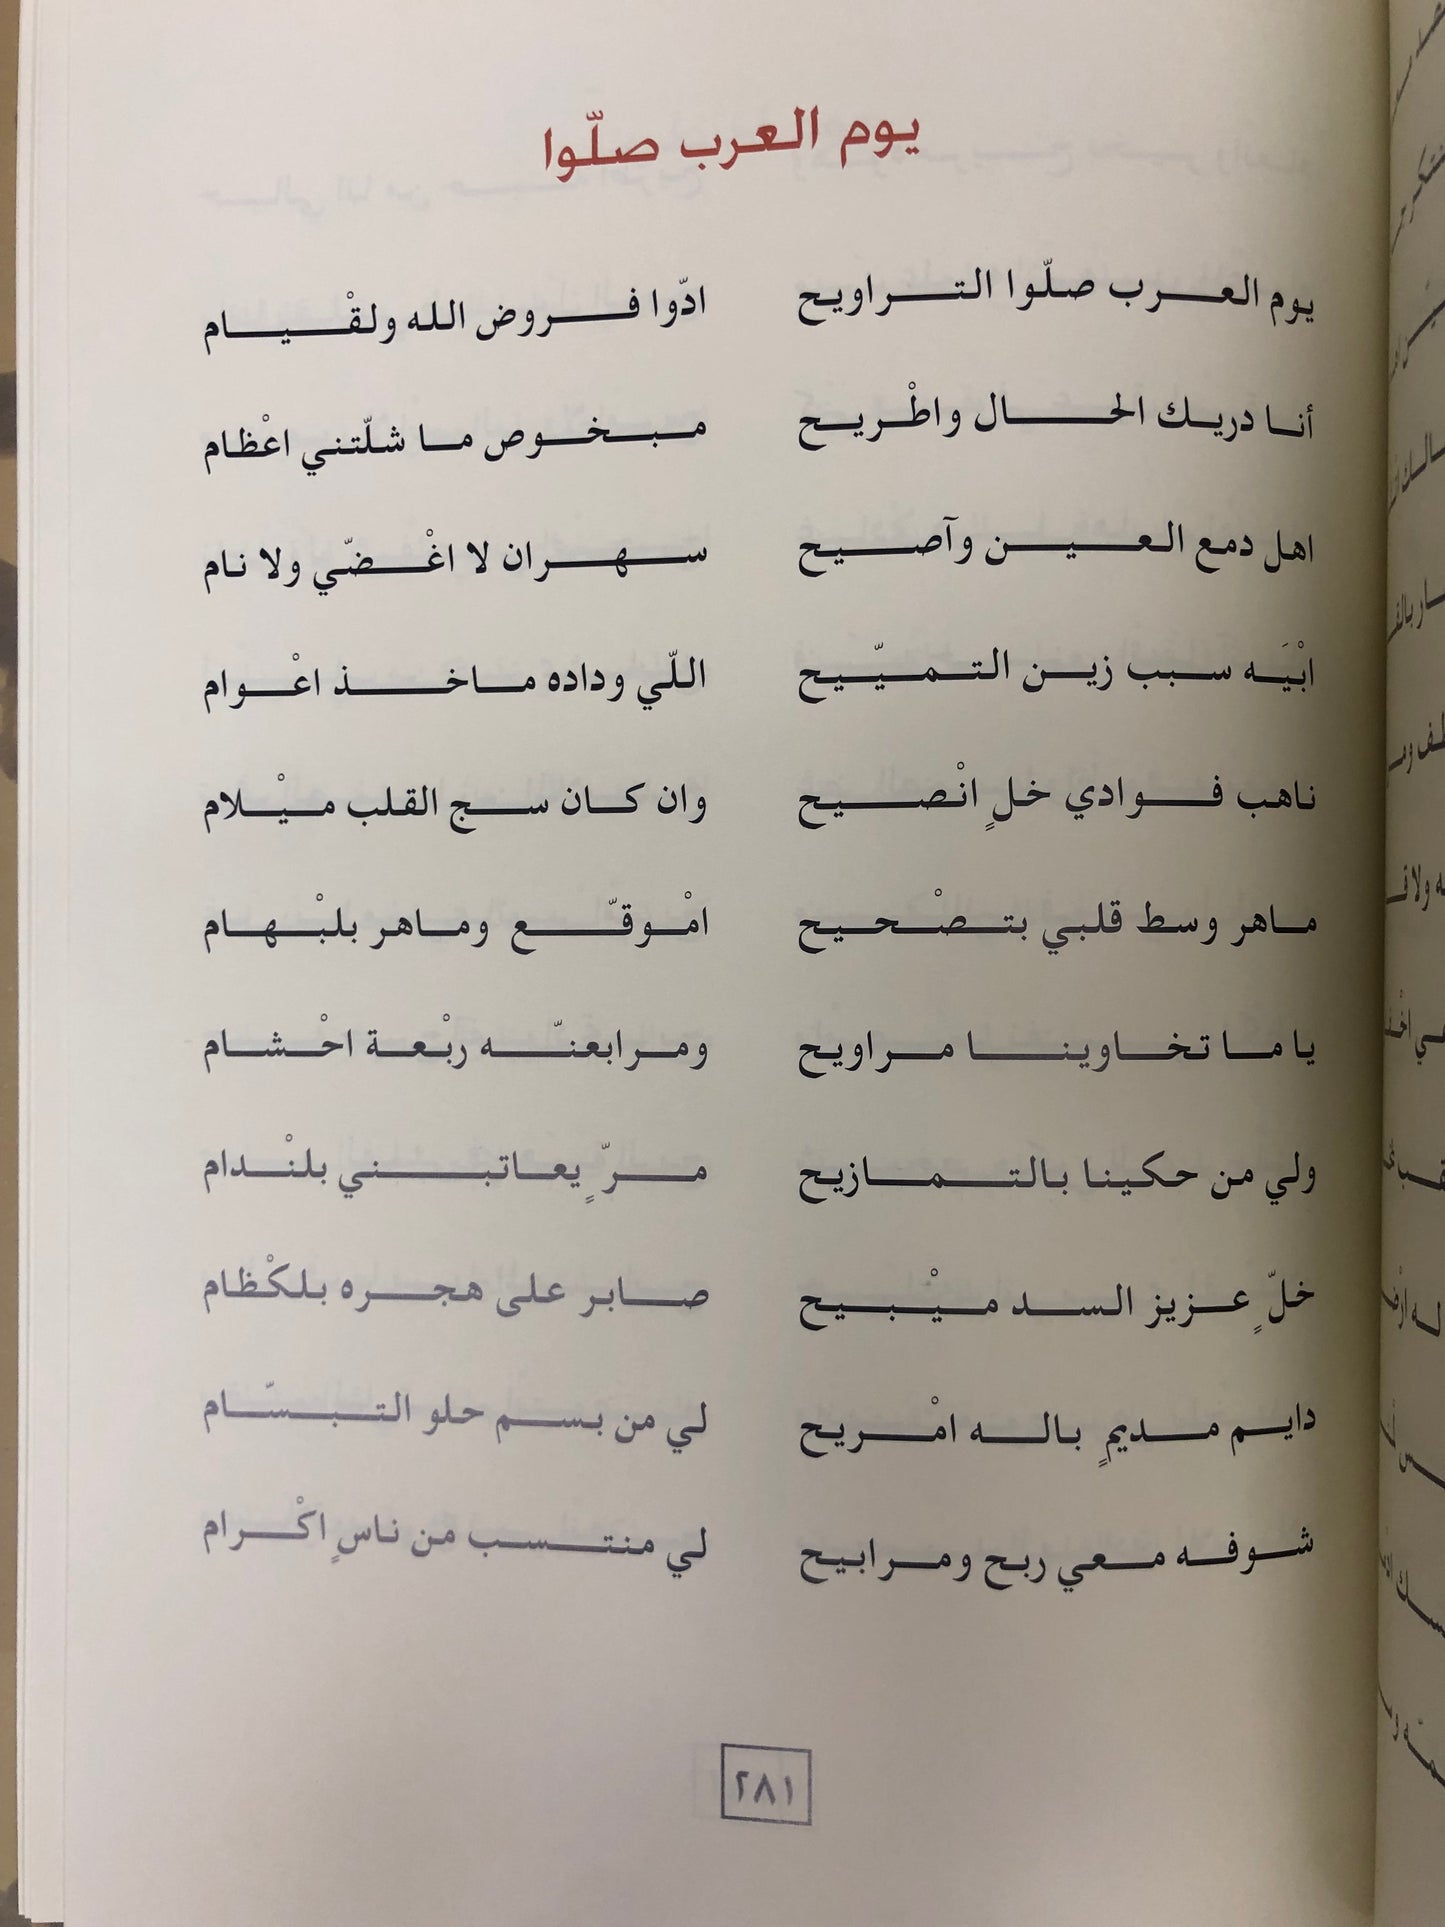 يوم العرب صلّوا
يوم العرب صلّوا التراويح ادّوا فروض الله ولقْيام
أنا دريك الحال واطْريح مبخوص ما شلّتني اعْظام
اهل دمع العين وآصيح سهران لا اغْضّي ولا نام
ابْيَه سبب زين التميّيح اللّي وداده ماخذ اعْوام
ناهب فوادي خلٍ انْصيح وان كان سج القلب ميْلام
ماهر وسط قلبي بتصْحيح امْوقّع وماهر بلبْهام
يا ما تخاوينا مراويح ومرابعنّه ربْعة احْشام
ولي من حكينا بالتمازيح مرّ ٍ يعاتبني بلنْدام
خلّ ٍ عزيز السد ميْبيح صابر على هجره بلكْظام
دايم مديمٍ باله امْريح لي من بسم حلو التبسّام
شوفه معي ربح ومرابيح لي منتسب من ناسٍ اكْرام
٢٨١